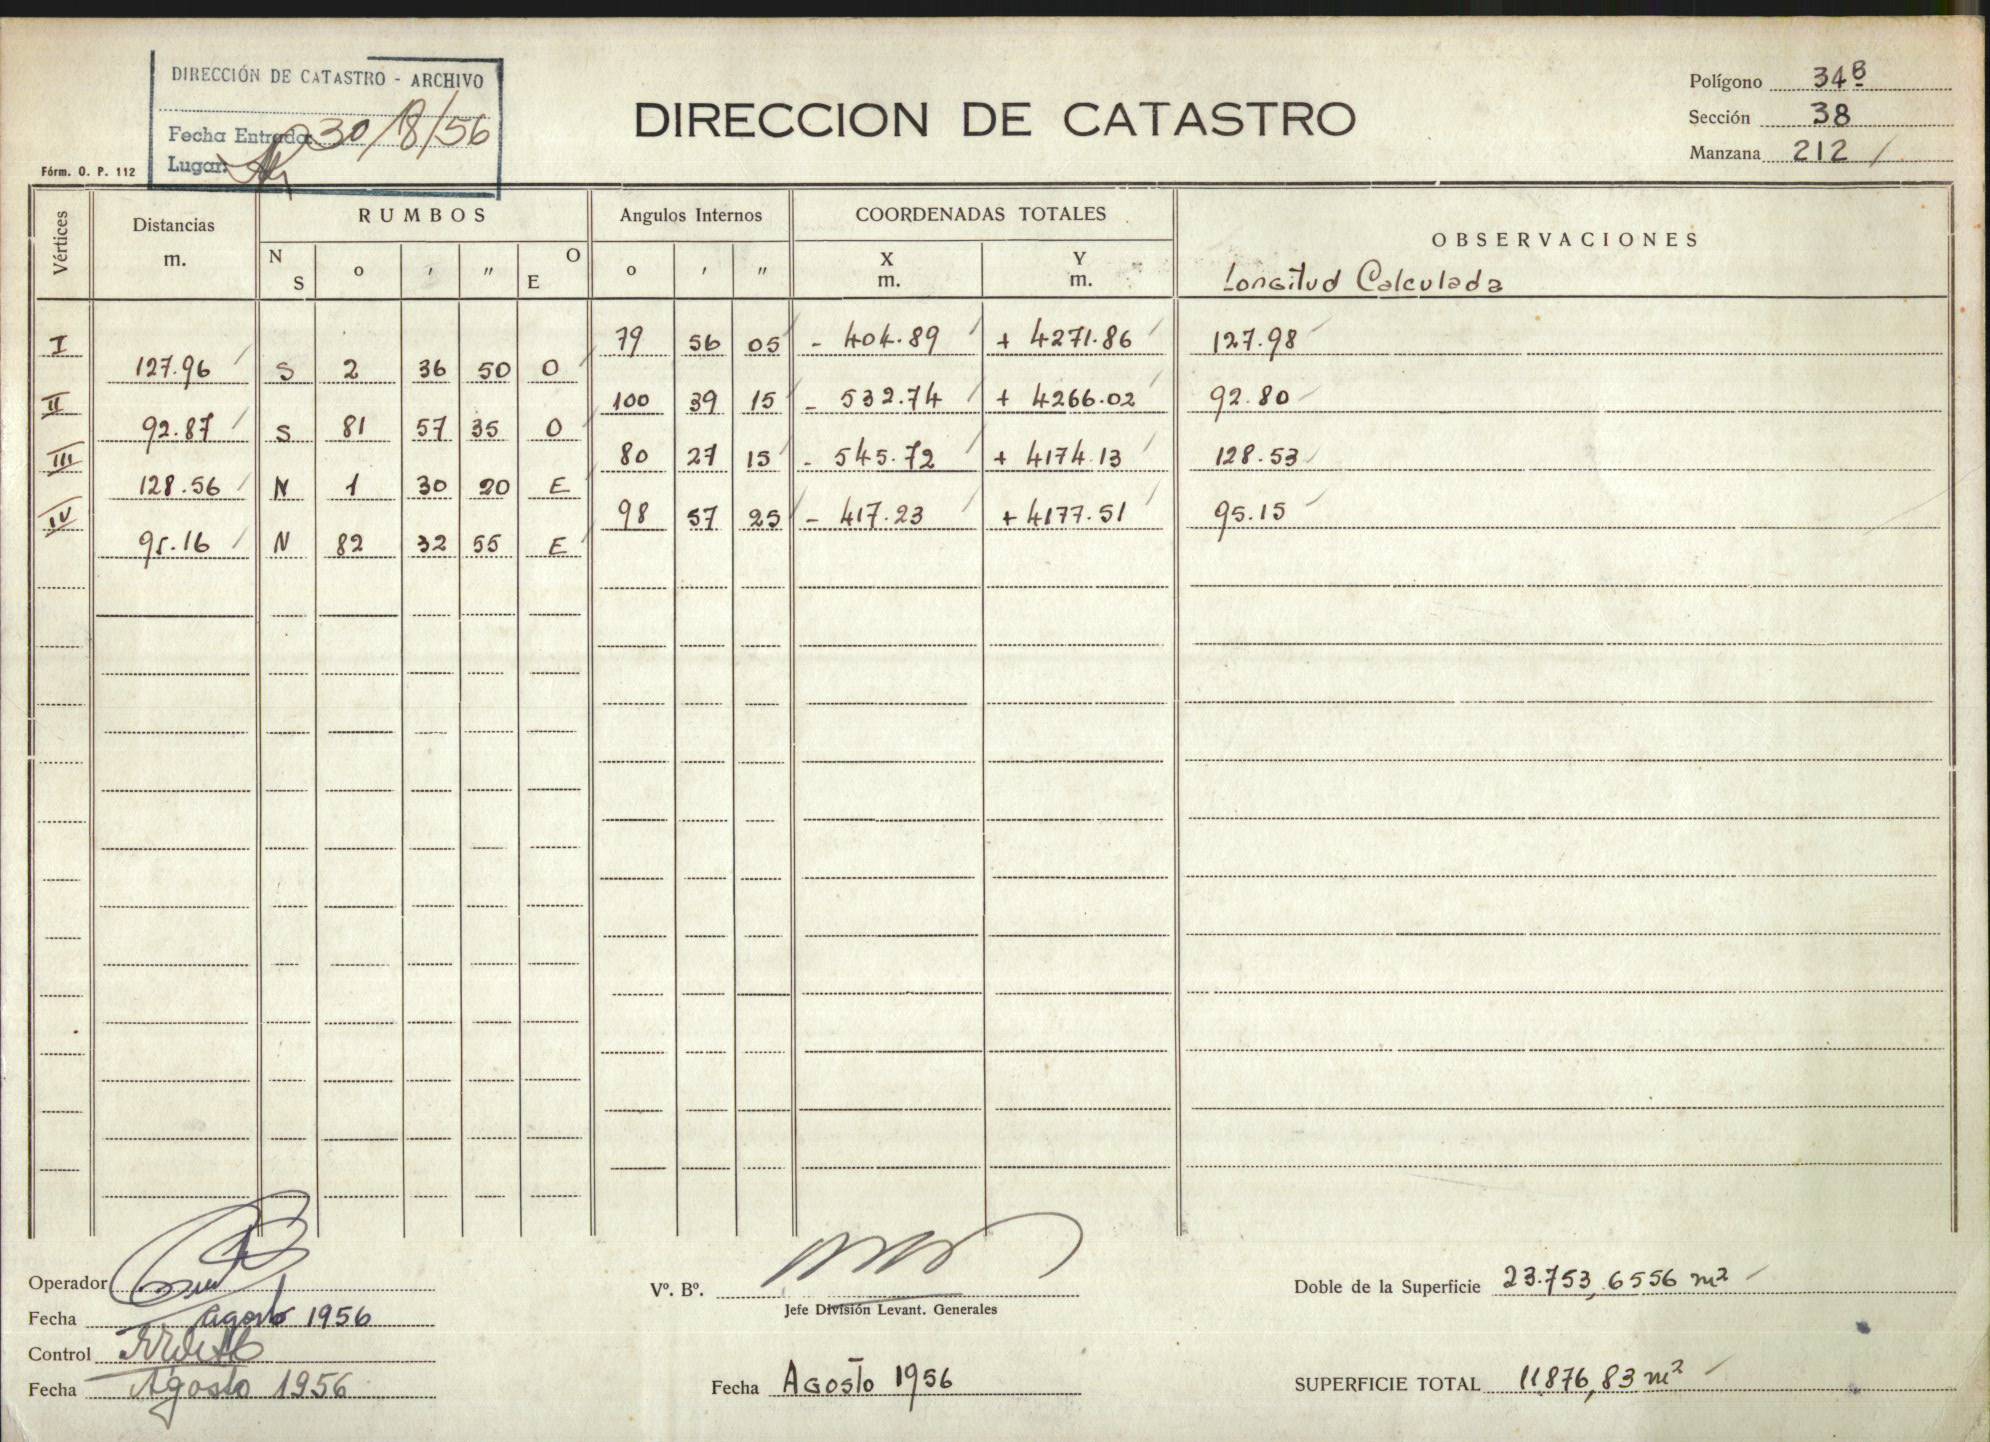 DIRECCIÓN DE CATASTRO - ARCHIVO
Fecha Entrada 30/8/56
Lugar
Fórm. O. P. 112
DIRECCION DE CATASTRO
Polígono 34 B
Sección 38
Manzana 212
Vértices Distancias m. RUMBOS Angulos Internos COORDENADAS TOTALES OBSERVACIONES
N S o ′ ″ O E o ′ ″ X m. Y m. Longitud Calculada
I 79 56 05 - 404.89 + 4271.86 127.98
127.96 S 2 36 50 O
II 100 39 15 - 532.74 + 4266.02 92.80
92.87 S 81 57 35 O
III 80 27 15 - 545.72 + 4174.13 128.53
128.56 N 1 30 20 E
IV 98 57 25 - 417.23 + 4177.51 95.15
95.16 N 82 32 55 E
Operador
Fecha agosto 1956
Control
Fecha Agosto 1956
Vº. Bº.
Jefe División Levant. Generales
Fecha Agosto 1956
Doble de la Superficie 23.753,6556 m²
SUPERFICIE TOTAL 11876,83 m²